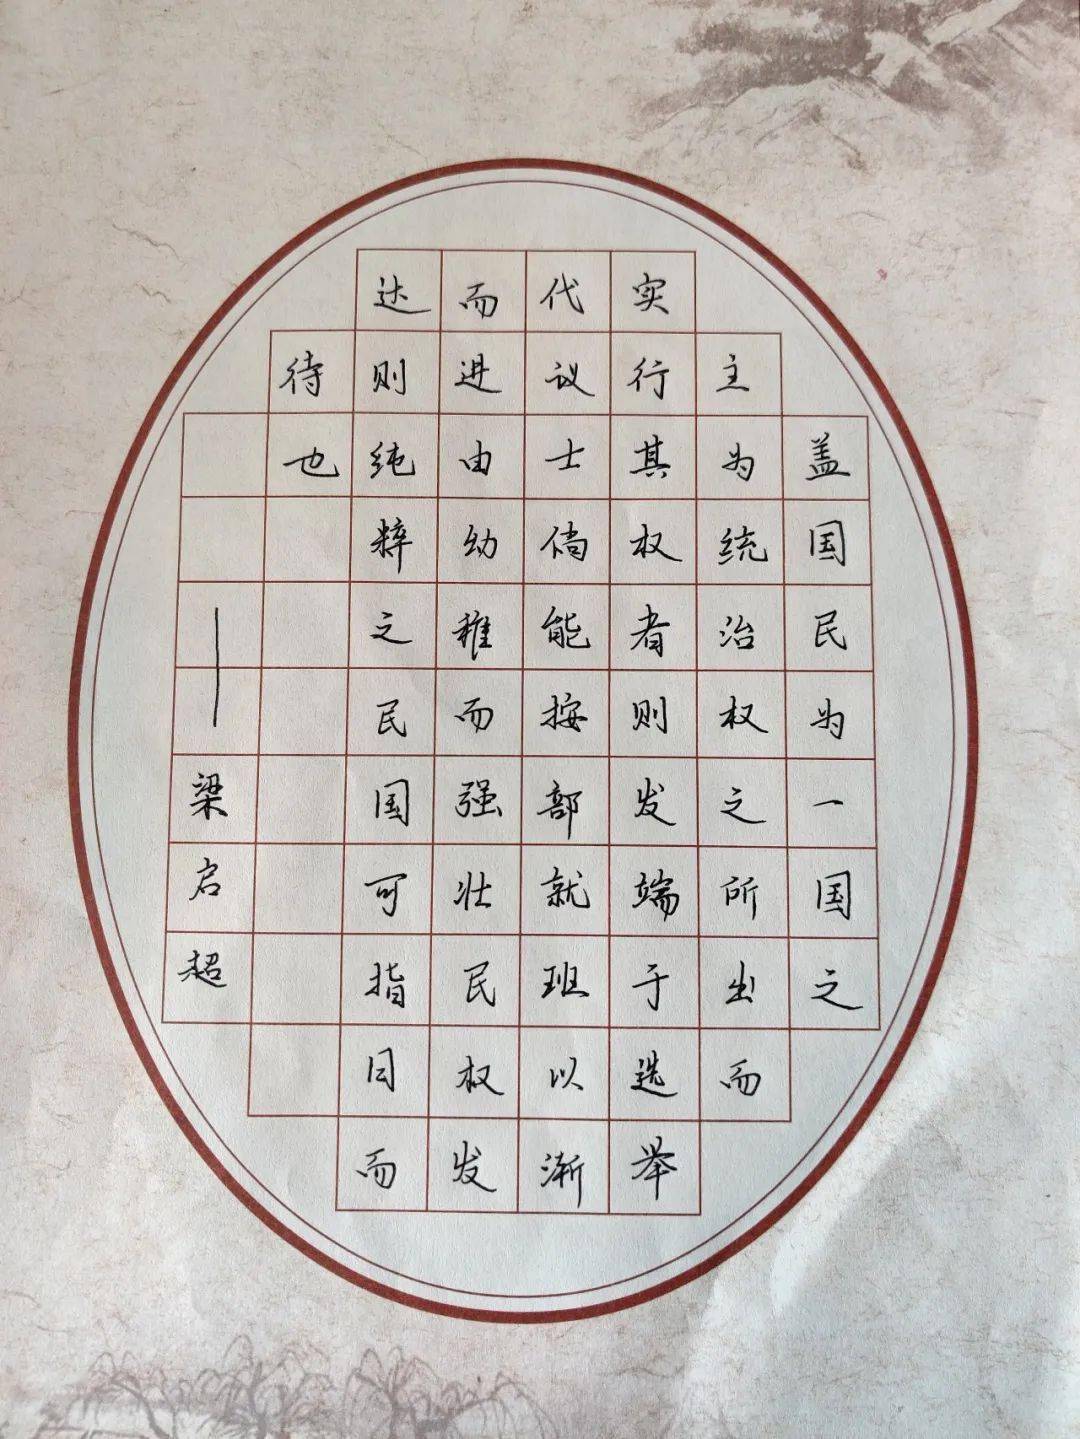 盖国民为一国之
主为统治权之所出而
实行其权者则发端于选举
代议士倘能按部就班以渐
而进由幼稚而强壮民权发
达则纯粹之民国可指日而
待也
——梁启超